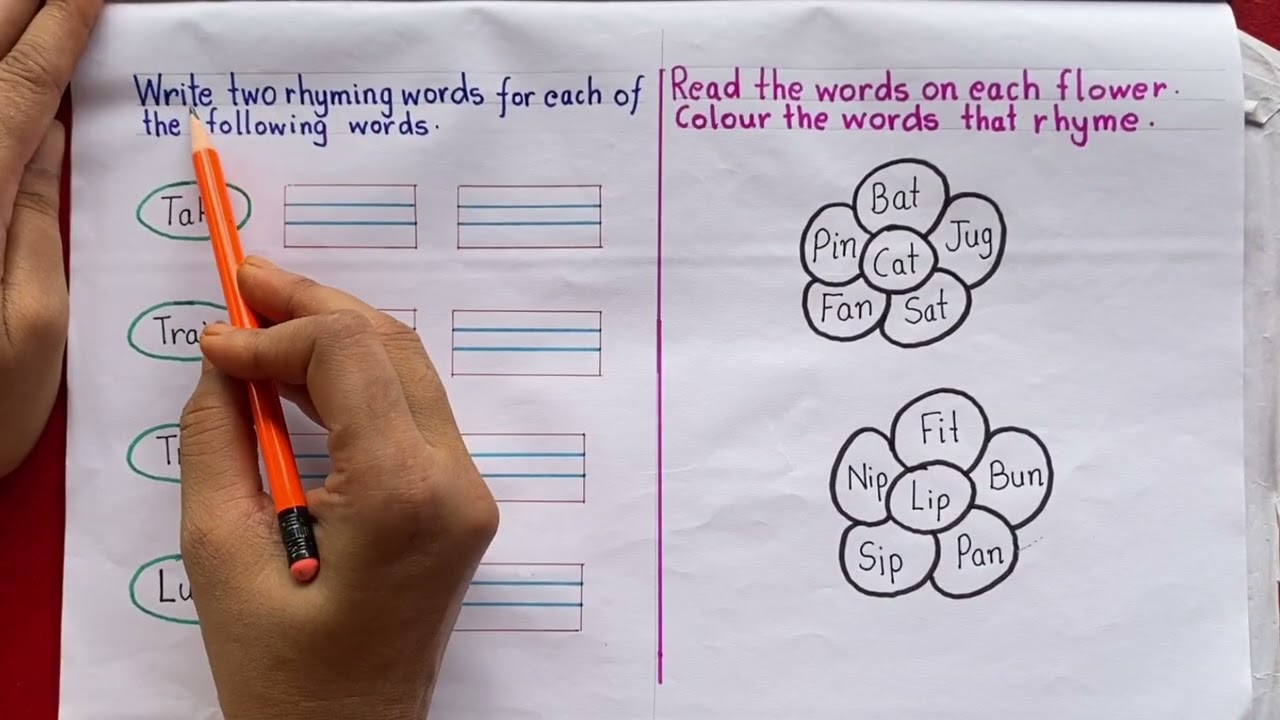 Write two rhyming words for each of
the following words.
Read the words on each flower.
Colour the words that rhyme.
Bat
Pin
Cat
Jug
Fan
Sat
Fit
Nip
Lip
Bun
Sip
Pan